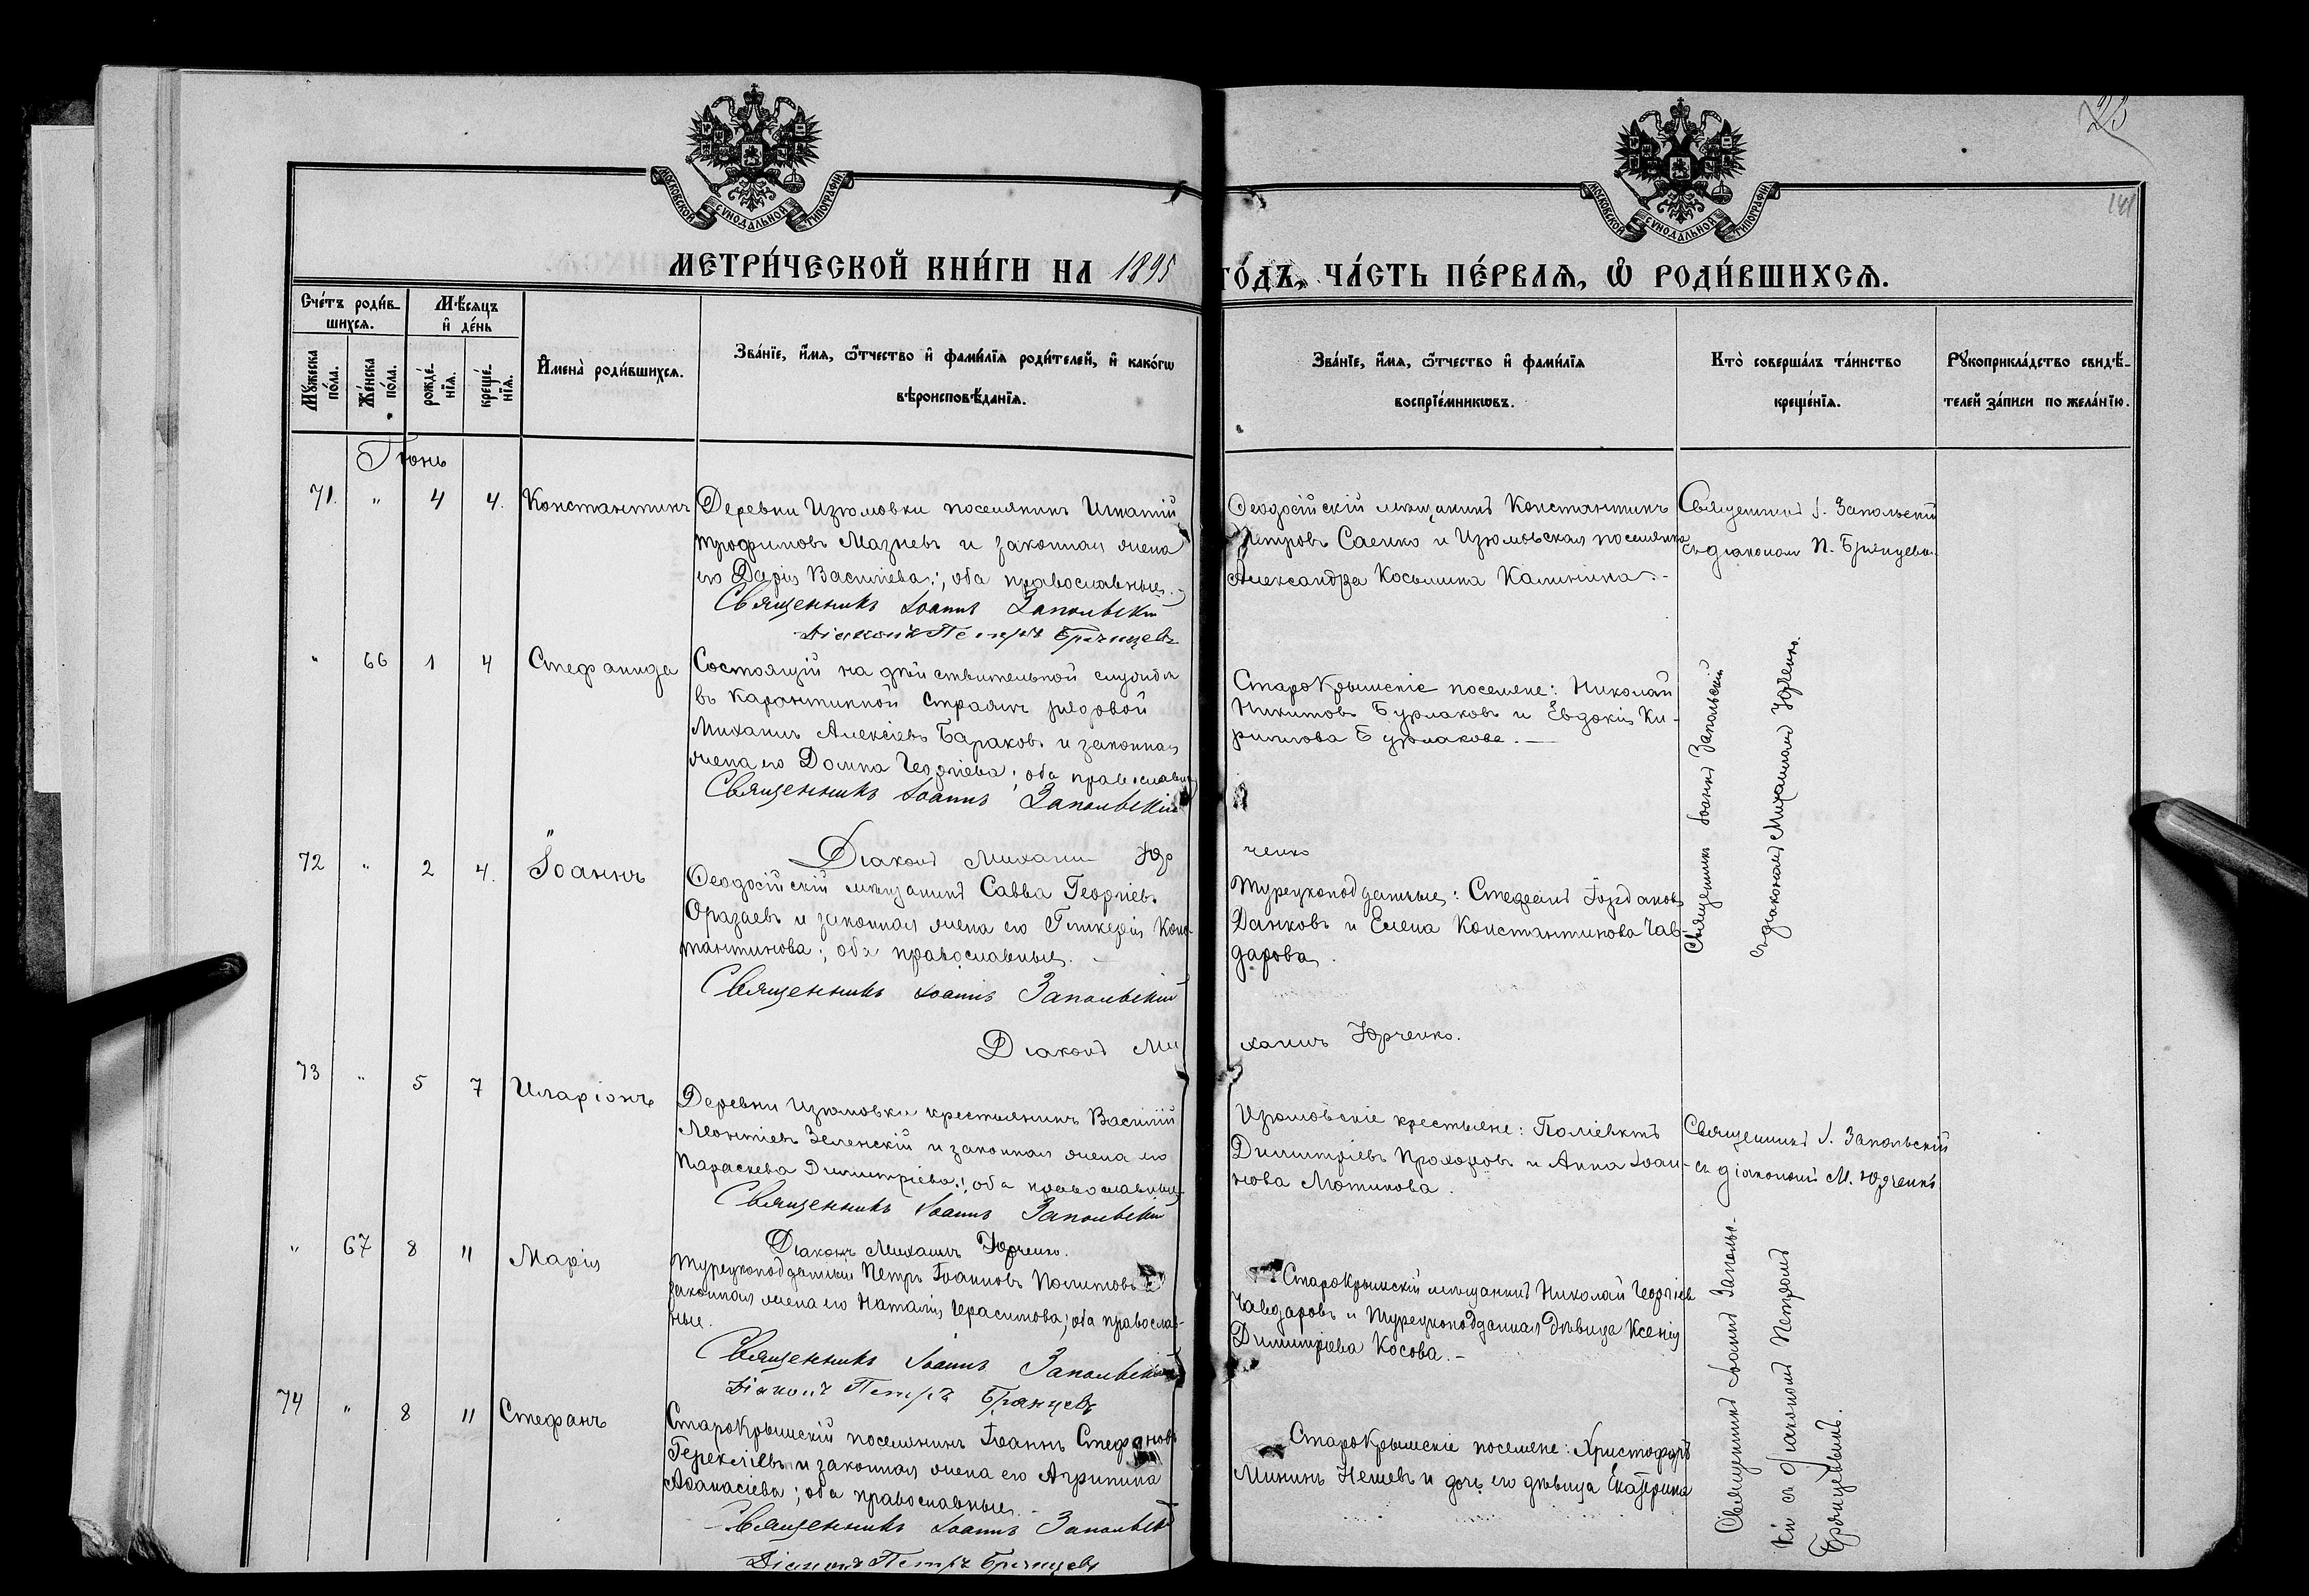 23
141
МОСКОВСКОЙ СѴНОДАЛЬНОЙ ТИПОГРАФІИ
МОСКОВСКОЙ СѴНОДАЛЬНОЙ ТИПОГРАФІИ
МЕТРИ́ЧЕСКОЙ КНИ́ГИ НА 1895 ГО́ДЪ, ЧА́СТЬ ПЕ́РВАЯ, Ѡ РОДИ́ВШИХСЯ.
Сче́тъ роди́в-
шихся.
Мѣ́сяцъ
и де́нь
Мꙋ́жеска
по́ла.
Же́нска
по́ла.
рожде́-
нїя.
креще́-
нїя.
И҆мена̀ роди́вшихся.
Зва́нїе, и҆́мя, ѻ҆́тчество и҆ фами́лїя роди́телей, и҆ како́гѡ
вѣроисповѣ́данїя.
Зва́нїе, и҆́мя, ѻ҆́тчество и҆ фами́лїя
воспрїе́мникѡвъ.
Кто̀ соверша́лъ та́инство
креще́нїя.
Рꙋкоприкла́дство свидѣ́-
телей за́писи по жела́нїю.
Іюнь
71. " 4 4. Константинъ
Деревни Изюмовки поселянинъ Игнатій
Трофимовъ Мазневъ и законная жена
его Дарія Васильева; оба православные.
Священникъ Іоаннъ Запольскій
Діаконъ Петръ Брянцевъ
Ѳеодосійскій мѣщанинъ Константинъ
Петровъ Саенко и Изюмовская поселянка
Александра Косьмина Калинина.
Священникъ І. Запольскій
съ діакономъ П. Брянцевымъ
" 66 1 4 Стефанида
Состоящій на дѣйствительной службѣ
въ Карантинной Стражѣ рядовой
Михаилъ Алексіевъ Бараковъ и законная
жена его Домна Георгіева; оба православные
Священникъ Іоаннъ Запольскій
Діаконъ Михаилъ Юрченко
СтароКрымскіе поселяне: Николай
Никитовъ Бурлаковъ и Евдокія Ки-
риллова Бурлакова.
Священникъ Іоаннъ Запольскій
съ діакономъ Михаиломъ Юрченко.
72 " 2 4. Іоаннъ
Ѳеодосійскій мѣщанинъ Савва Георгіевъ
Оразаевъ и законная жена его Гликерія Конс-
тантинова; оба православные.
Священникъ Іоаннъ Запольскій
Діаконъ Михаилъ Юрченко.
Турецкоподданные: Стефанъ Іордановъ
Данковъ и Елена Константинова Чав-
дарова.
73 " 5 7 Иларіонъ
Деревни Изюмовки крестьянинъ Василій
Леонтіевъ Зеленскій и законная жена его
Параскева Димитріева; оба православные
Священникъ Іоаннъ Запольскій
Діаконъ Михаилъ Юрченко.
Изюмовскіе крестьяне: Поліевктъ
Димитріевъ Прохоровъ и Анна Іоан-
нова Лютикова.
Священникъ І. Запольскій
съ діакономъ М. Юрченко
" 67 8 11 Марія
Турецкоподданный Петръ Іоанновъ Политовъ и
законная жена его Наталія Герасимова; оба православ-
ные.
Священникъ Іоаннъ Запольскій
Діаконъ Петръ Брянцевъ
СтароКрымскій мѣщанинъ Николай Георгіевъ
Чавдаровъ и Турецкоподданная дѣвица Ксенія
Димитріева Косова.
Священникъ Іоаннъ Запольс-
кій съ діакономъ Петромъ
Брянцевымъ.
74 " 8 11 Стефанъ
СтароКрымскій поселянинъ Іоаннъ Стефановъ
Гереклиевъ и законная жена его Агрипина
Аѳанасіева; оба православные.
Священникъ Іоаннъ Запольскій
Діаконъ Петръ Брянцевъ
СтароКрымскіе поселяне: Христофоръ
Мининъ Нешевъ и дочь его дѣвица Екатерина